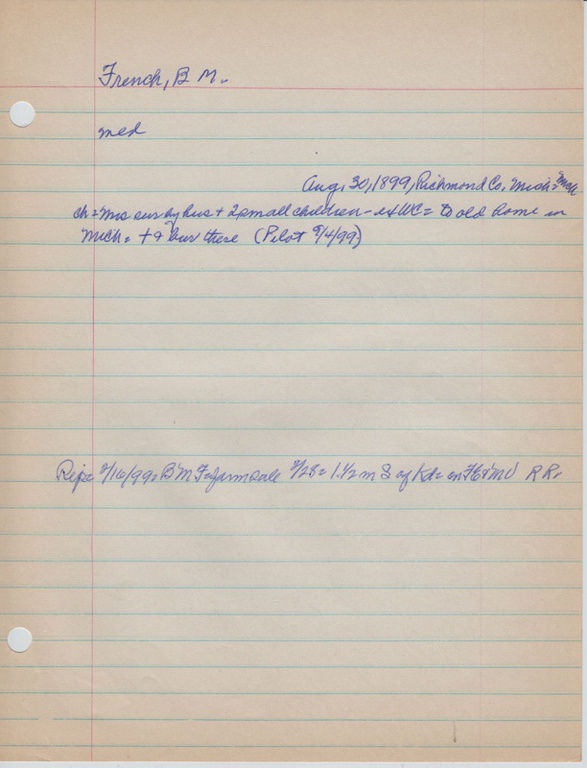 French, B M.
med
Aug, 30, 1899, Richmond Co, Mich = Mich
ch = Mrs sur by hus + 2 small children - ex WC = to old home in
Mich = + & bur there (Pilot 9/4/99)
Rep = 2/16/99 = B M F = farm sale 2/28 = 1 1/2 m S of Kd = on R R